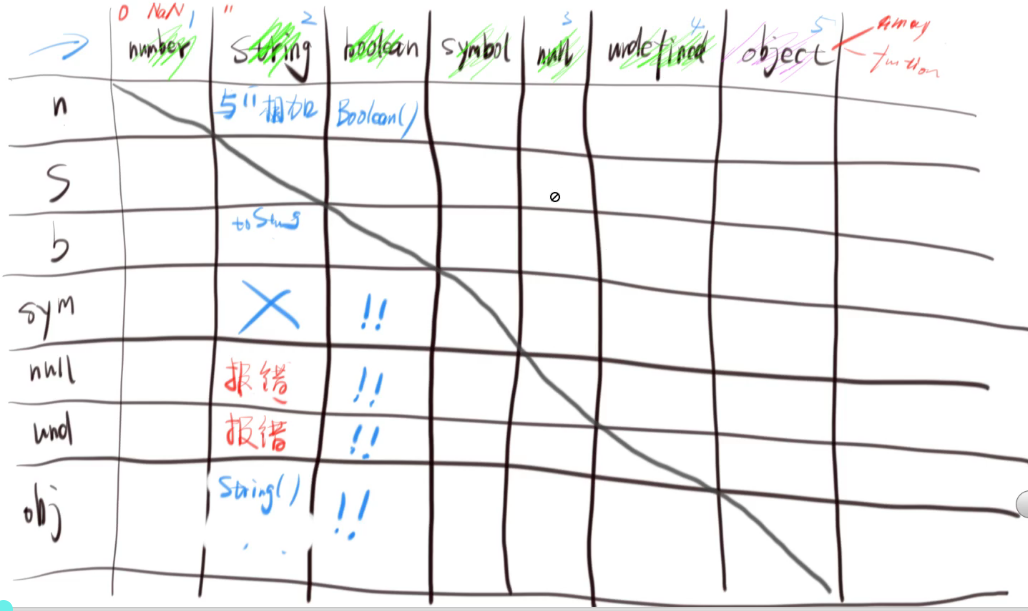 0 NaN 1 '' 2 3 4 5
number string boolean symbol null undefined object array
function
n 与''相加 Boolean()
S
b toString
sym X !!
null 报错 !!
und 报错 !!
obj String() !!